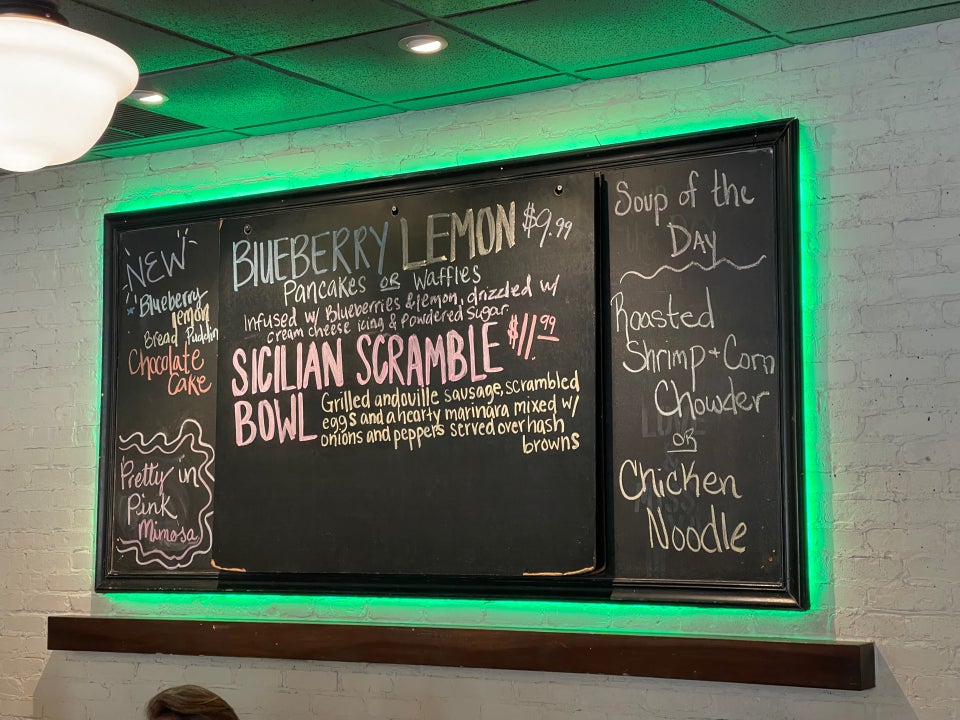 NEW
Blueberry
lemon
Bread Puddin
Chocolate
Cake
Pretty in
Pink
Mimosa
BLUEBERRY LEMON $9.99
Pancakes OR Waffles
Infused w/ Blueberries & lemon, drizzled w/
cream cheese icing & Powdered sugar.
SICILIAN SCRAMBLE $11.99
BOWL
Grilled andouille sausage, scrambled
eggs and a hearty marinara mixed w/
onions and peppers served over hash
browns
Soup of the
DAY
Roasted
Shrimp + Corn
Chowder
OR
Chicken
Noodle